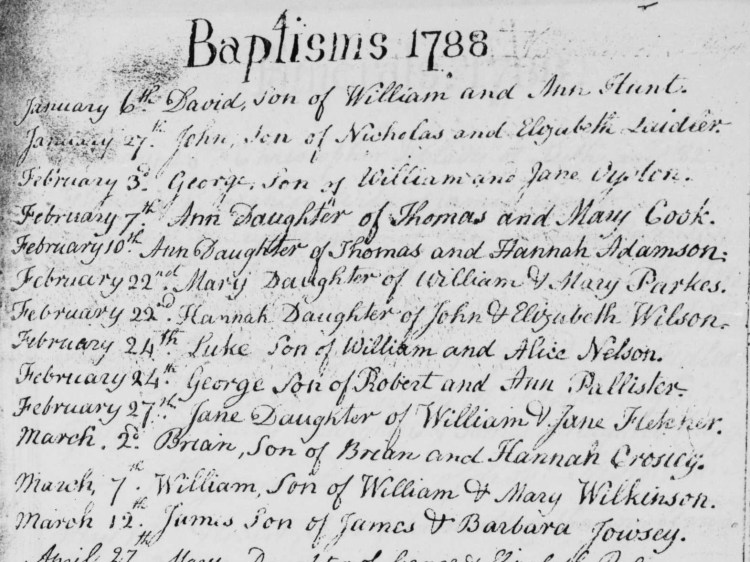 Baptisms 1788
January 6th. David, Son of William and Ann Hunt.
January 27th. John, Son of Nicholas and Elizabeth Laidler.
February 3d. George, Son of William and Jane
February 7th. Ann Daughter of Thomas and Mary Cook.
February 10th. Ann Daughter of Thomas and Hannah Adamson.
February 22nd Mary Daughter of William & Mary Parkes.
February 22nd. Hannah Daughter of John & Elizabeth Wilson.
February 24th. Luke Son of William and Alice Nelson.
February 24th. George Son of Robert and Ann Pallister.
February 27th. Jane Daughter of William & Jane Fletcher.
March. 2d. Brian, Son of Brian and Hannah
March, 7th. William, Son of William & Mary Wilkinson.
March 12th. James, Son of James & Barbara Jowsey.
April 27th Mary Daughter of